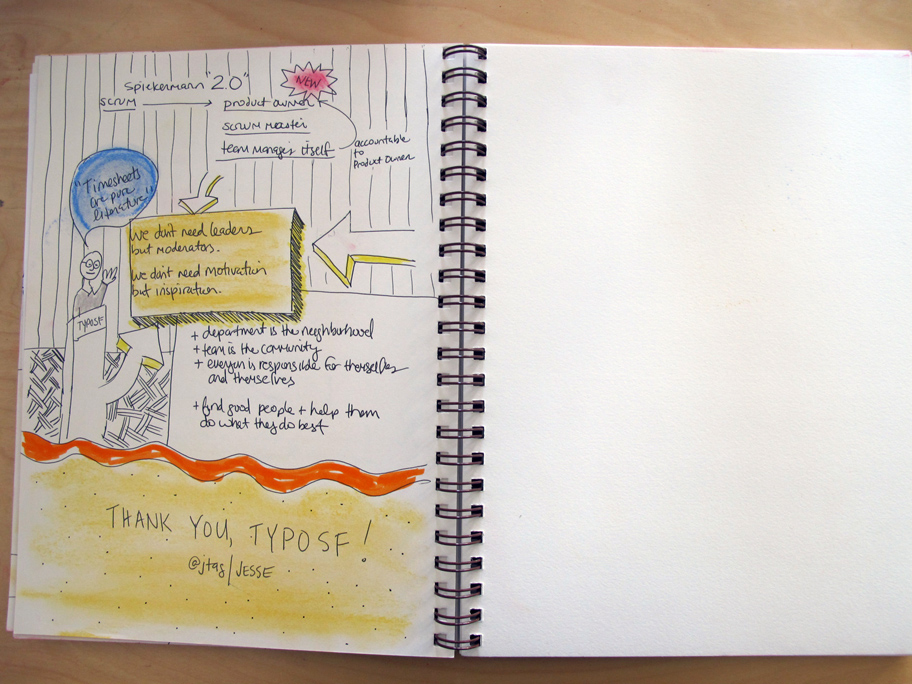 Spiekermann "2.0"
NEW
SCRUM
product owner
scrum master
team manages itself
accountable
to
Product Owner
"Timesheets
are pure
literature"
We don't need leaders
but moderators.
We don't need motivation
but inspiration.
TYPOSF
+ department is the neighborhood
+ team is the community
+ everyone is responsible for themselves
and themselves
+ find good people + help them
do what they do best
THANK YOU, TYPOSF!
@jtag/JESSE